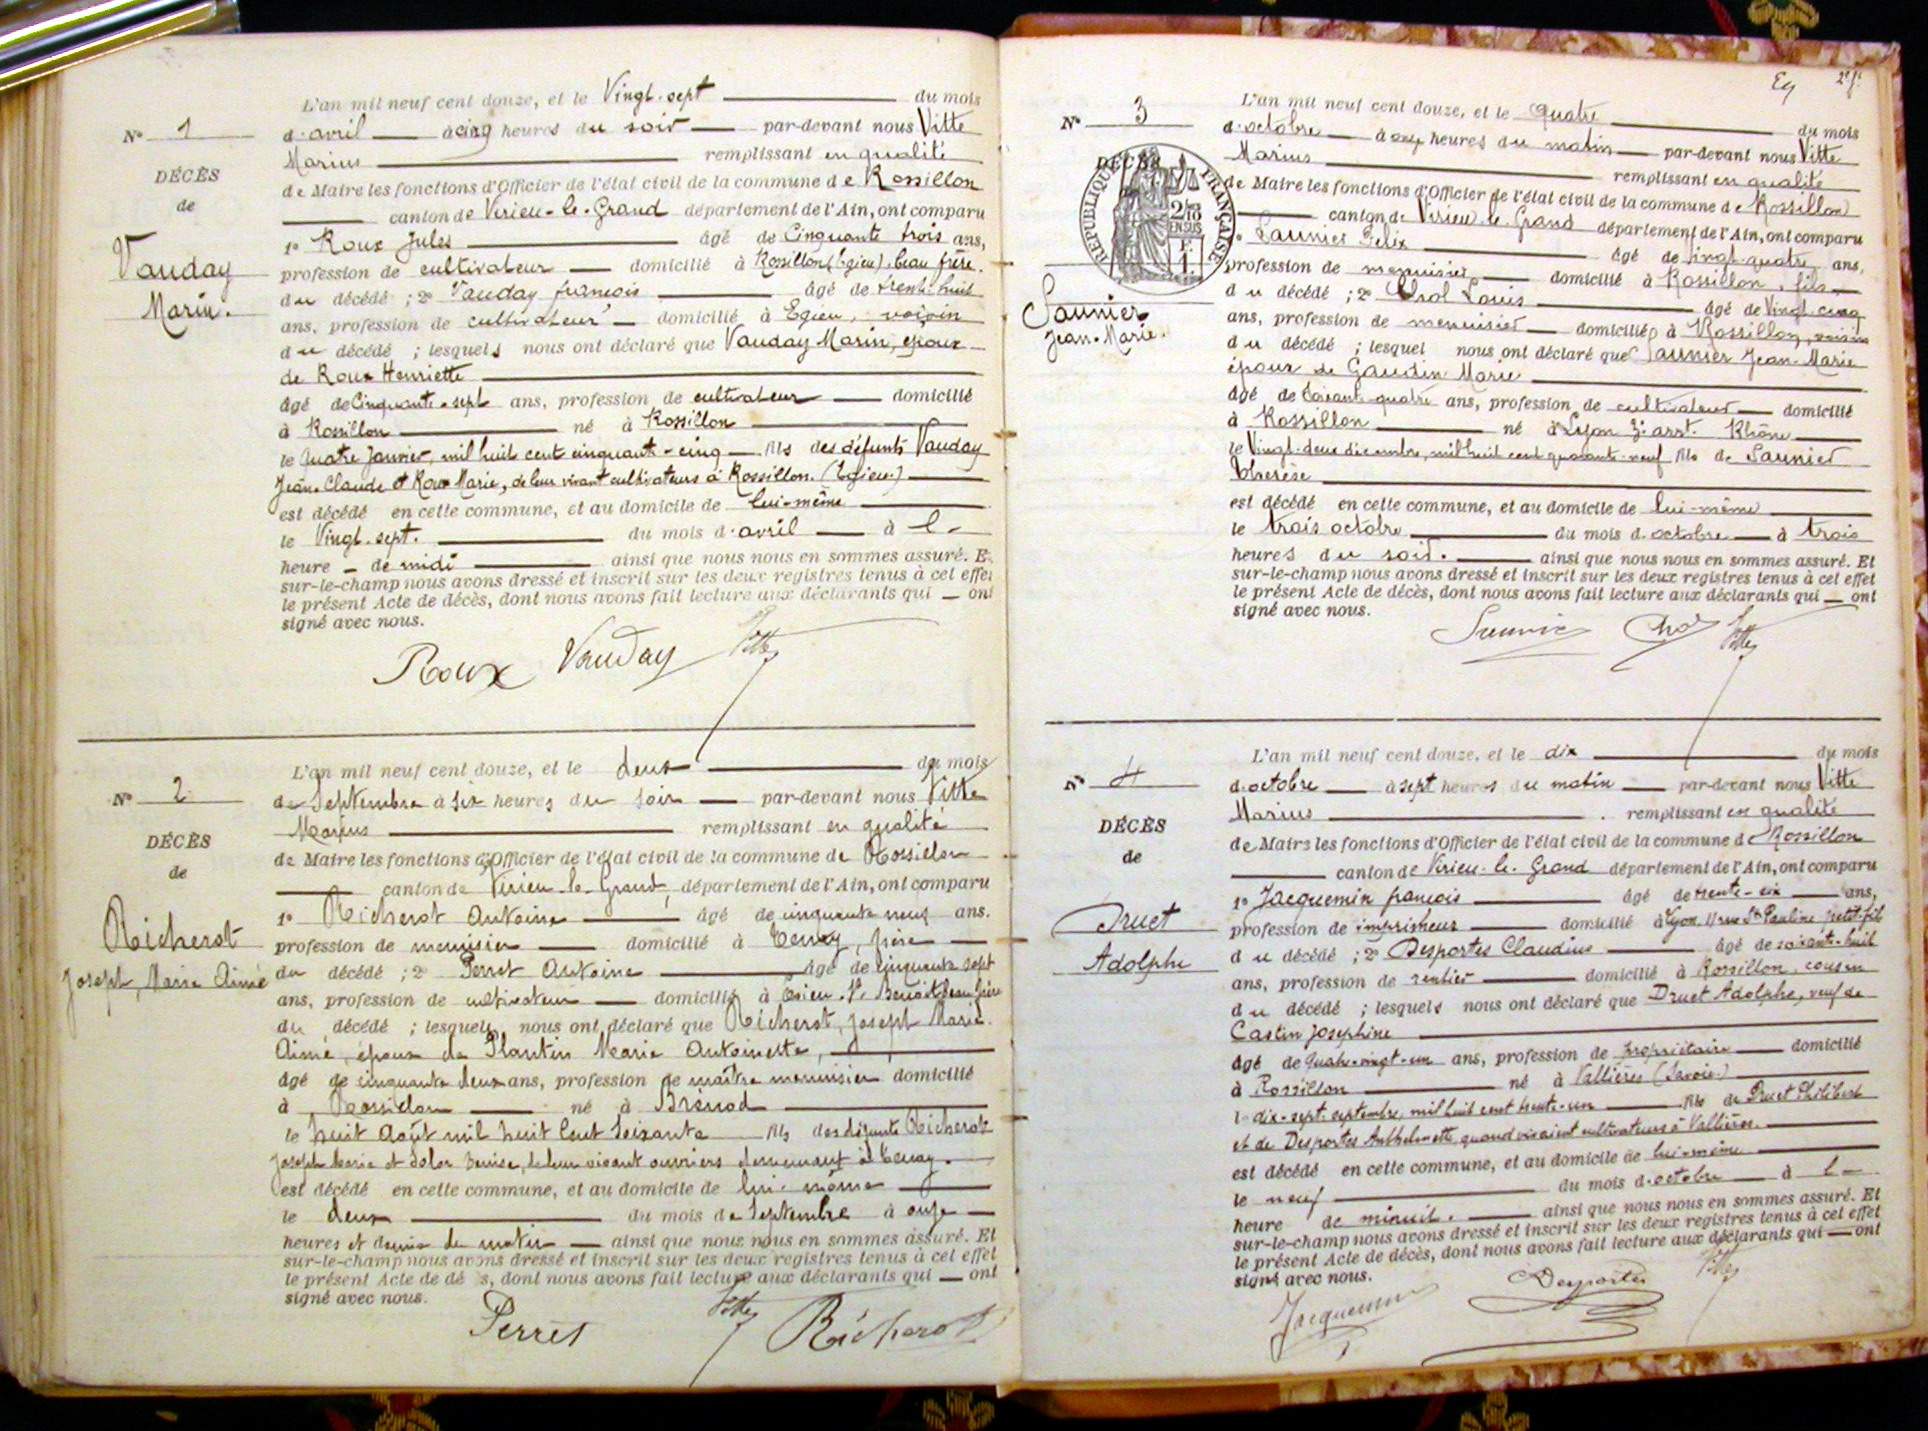 L'an mil neuf cent douze, et le Vingt-sept du mois
N° 1
d'avril à cinq heures du soir par-devant nous Vitte
Marius remplissant en qualité
DÉCÈS
de Maire les fonctions d'Officier de l'état civil de la commune de Rossillon
de
canton de Virieu-le-Grand département de l'Ain, ont comparu
1° Roux Jules âgé de Cinquante trois ans,
Vauday
profession de cultivateur domicilié à Rossillon (Egieu), beau frère
du décédé ; 2° Vauday françois âgé de trente-huit
Marin.
ans, profession de cultivateur domicilié à Egieu, voisin
du décédé ; lesquels nous ont déclaré que Vauday Marin, époux
de Roux Henriette
âgé de Cinquante-sept ans, profession de cultivateur domicilié
à Rossillon né à Rossillon
le quatre Janvier, mil huit cent cinquante-cinq fils des défunts Vauday
Jean-Claude et Roux Marie, de leur vivant cultivateurs à Rossillon. (Egieu.)
est décédé en cette commune, et au domicile de lui-même
le Vingt-sept. du mois d'avril à l-
heure de midi ainsi que nous nous en sommes assuré. Et
sur-le-champ nous avons dressé et inscrit sur les deux registres tenus à cet effet
le présent Acte de décès, dont nous avons fait lecture aux déclarants qui ont
signé avec nous.
Roux Vauday Vitte
L'an mil neuf cent douze, et le deux du mois
N° 2
de Septembre à six heures du soir par-devant nous Vitte
Marius remplissant en qualité
DÉCÈS
de Maire les fonctions d'Officier de l'état civil de la commune de Rossillon
de
canton de Virieu-le-Grand, département de l'Ain, ont comparu
1° Richerot Antoine âgé de cinquante neuf ans.
Richerot
profession de menuisier domicilié à Tenay, frère
Joseph, Marie Aimé
du décédé ; 2° Perret Antoine âgé de cinquante sept
ans, profession de cultivateur domicilié à St. Benoit beau frère
du décédé ; lesquels nous ont déclaré que Richerot, Joseph Marie
Aimé, époux de Plantin Marie Antoinette,
âgé de cinquante deux ans, profession de maître menuisier domicilié
à Rossillon né à Brénod
le huit Août mil huit cent soixante fils des défunts Richerot
Joseph Marie et Denise, de leur vivant ouvriers demeurant à Tenay.
est décédé en cette commune, et au domicile de lui-même
le deux du mois de Septembre à onze
heures et demie du matin ainsi que nous nous en sommes assuré. Et
sur-le-champ nous avons dressé et inscrit sur les deux registres tenus à cet effet
le présent Acte de dé s, dont nous avons fait lecture aux déclarants qui ont
signé avec nous.
Perret Vitte Richerot
2e f.
L'an mil neuf cent douze, et le Quatre du mois
N° 3
d'octobre à onze heures du matin par-devant nous Vitte
Marius remplissant en qualité
DÉCÈS
RÉPUBLIQUE FRANÇAISE
de Maire les fonctions d'Officier de l'état civil de la commune de Rossillon
canton de Virieu-le-Grand département de l'Ain, ont comparu
1° Saunier Félix âgé de vingt-quatre ans,
profession de menuisier domicilié à Rossillon, fils
du décédé ; 2° Louis âgé de Vingt-cinq
Saunier
Jean-Marie.
ans, profession de menuisier domicilié à Rossillon, voisin
du décédé ; lesquel nous ont déclaré que Saunier Jean-Marie
époux de Gaudin Marie
âgé de soixante quatre ans, profession de cultivateur domicilié
à Rossillon né à Lyon 3e arrt. Rhône
le Vingt-deux décembre, mil huit cent quarante-neuf fils de Saunier
Thérèse
est décédé en cette commune, et au domicile de lui-même
le trois octobre du mois d'octobre à trois
heures du soir. ainsi que nous nous en sommes assuré. Et
sur-le-champ nous avons dressé et inscrit sur les deux registres tenus à cet effet
le présent Acte de décès, dont nous avons fait lecture aux déclarants qui ont
signé avec nous.
Saunier Vitte
L'an mil neuf cent douze, et le dix du mois
N° 4
d'octobre à sept heures du matin par-devant nous Vitte
Marius remplissant en qualité
DÉCÈS
de Maire les fonctions d'Officier de l'état civil de la commune de Rossillon
de
canton de Virieu-le-Grand département de l'Ain, ont comparu
1° Jacquemin françois âgé de trente-six ans,
Druet
profession de imprimeur domicilié à Lyon, 11 rue Ste Pauline petit-fils
du décédé ; 2° Desportes Claudius âgé de soixante-huit
Adolphe
ans, profession de rentier domicilié à Rossillon, cousin
du décédé ; lesquels nous ont déclaré que Druet Adolphe, veuf de
Castin Joséphine
âgé de quatre-vingt-un ans, profession de propriétaire domicilié
à Rossillon né à Vallières (Savoie)
le dix-sept septembre, mil huit cent trente-un fils de Druet Philibert
et de Desportes Anthelmette, quand vivaient cultivateurs à Vallières.
est décédé en cette commune, et au domicile de lui-même
le neuf du mois d'octobre à l-
heure de minuit. ainsi que nous nous en sommes assuré. Et
sur-le-champ nous avons dressé et inscrit sur les deux registres tenus à cet effet
le présent Acte de décès, dont nous avons fait lecture aux déclarants qui ont
signé avec nous.
Jacquemin Desportes Vitte